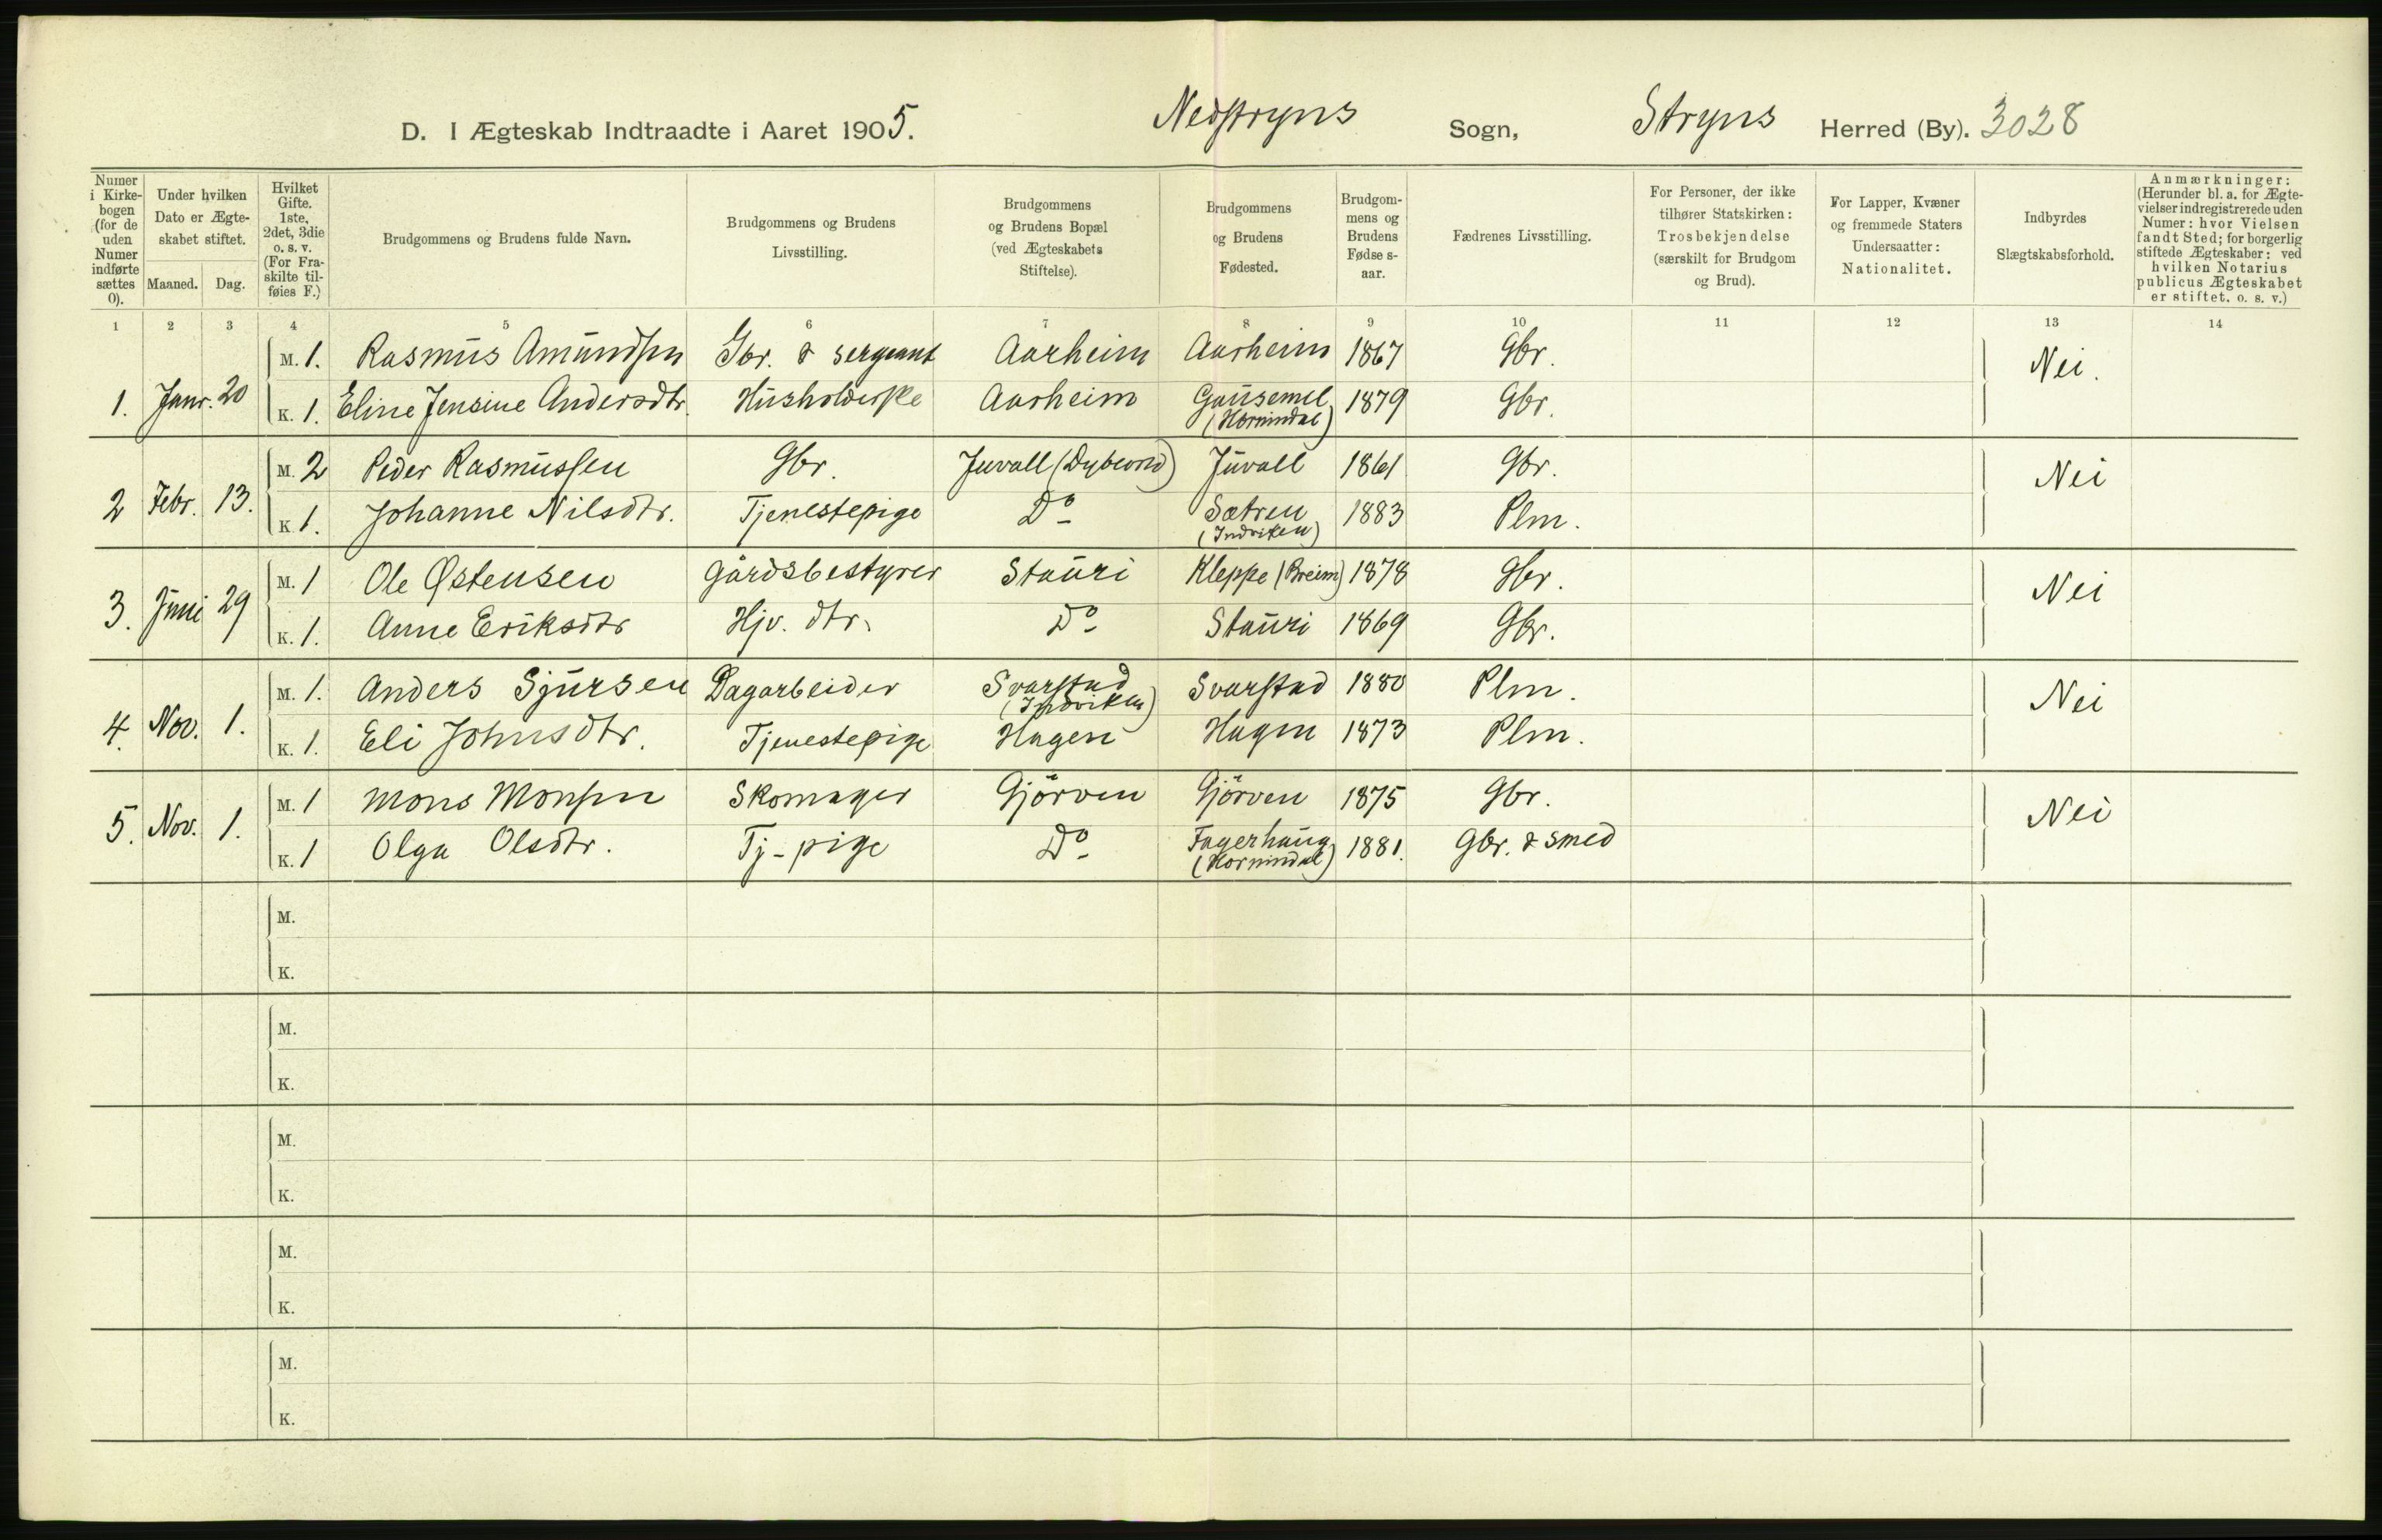 D. I Ægteskab Indtraadte i Aaret 1905. Nedstryns Sogn, Stryns Herred (By). 3028
Numer i Kirke-bogen (for de uden Numer indførte sættes 0).
Under hvilken Dato er Ægte-skabet stiftet.
Maaned. Dag.
Hvilket Gifte. 1ste, 2det, 3die o. s. v. (For Fra-skilte til-føies F.)
Brudgommens og Brudens fulde Navn.
Brudgommens og Brudens Livsstilling.
Brudgommens og Brudens Bopæl (ved Ægteskabets Stiftelse).
Brudgommens og Brudens Fødested.
Brudgom-mens og Brudens Fødses-aar.
Fædrenes Livsstilling.
For Personer, der ikke tilhører Statskirken: Trosbekjendelse (særskilt for Brudgom og Brud).
For Lapper, Kvæner og fremmede Staters Undersaatter: Nationalitet.
Indbyrdes Slægtskabsforhold.
Anmærkninger: (Herunder bl. a. for Ægte-vielser indregistrerede uden Numer: hvor Vielsen fandt Sted; for borgerlig stiftede Ægteskaber: ved hvilken Notarius publicus Ægteskabet er stiftet, o. s. v.)
1 2 3 4 5 6 7 8 9 10 11 12 13 14
1. Janr. 20 M. 1. Rasmus Amundsen Gbr. & sergeant Aarheim Aarheim 1867 Gbr. Nei.
K. 1. Eline Jensine Andersdtr. Husholderske Aarheim Gausemel (Hornindal) 1879 Gbr.
2 Febr. 13. M. 2 Peder Rasmussen Gbr. Juvall Juvall 1861 Gbr. Nei
K. 1. Johanne Nilsdtr. Tjenestepige Do Sætren (Indviken) 1883 Plm.
3. Juni 29 M. 1 Ole Østensen gårdsbestyrer Stauri Kleppe (Breim) 1878 Gbr. Nei
K. 1. Anne Eriksdtr Hjv. dtr. Do Stauri 1869 Gbr.
4. Nov. 1. M. 1. Anders Sjursen Dagarbeider Svarstad (Indviken) Svarstad 1880 Plm. Nei
K. 1. Eli Johnsdtr. Tjenestepige Hagen Hagen 1873 Plm.
5. Nov. 1. M. 1 Mons Monsen Skomager Gjörven Gjörven 1875 Gbr. Nei
K. 1 Olga Olsdtr. Tj-pige Do Fagerhaug (Hornindal) 1881. Gbr. & smed
M.
K.
M.
K.
M.
K.
M.
K.
M.
K.